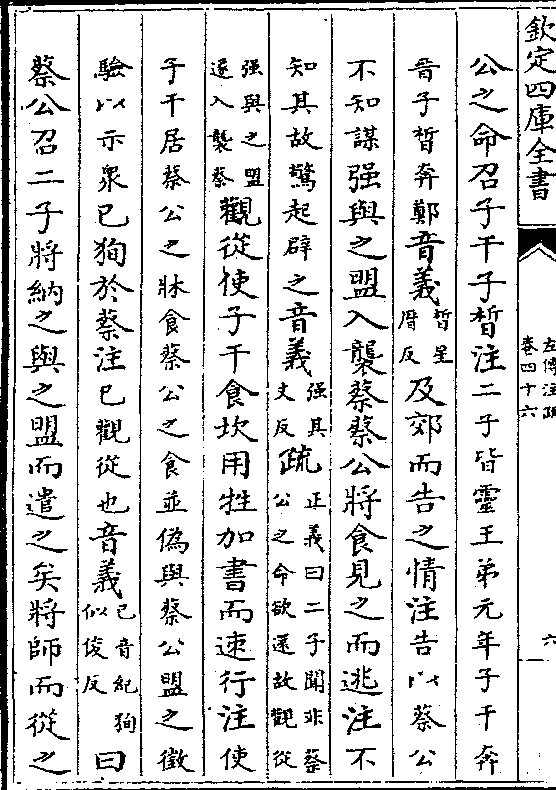 欽定四庫全書
左傳注疏
卷四十六
六
公之命召子干子晳注二子皆靈王弟元年子干奔
晉子晳奔鄭音義晳星厝反及郊而告之情注告以蔡公
不知謀强與之盟入襲蔡蔡公將食見之而逃注不
知其故驚起辟之音義强其丈反疏正義曰二子聞非蔡公之命欲還故觀從
强與之盟遂入襲蔡觀從使子干食坎用牲加書而速行注使
子干居蔡公之牀食蔡公之食並偽與蔡公盟之徵
驗以示衆已狥於蔡注已觀從也音義已音紀狥似俊反曰
蔡公召二子將納之與之盟而遣之矣將師而從之